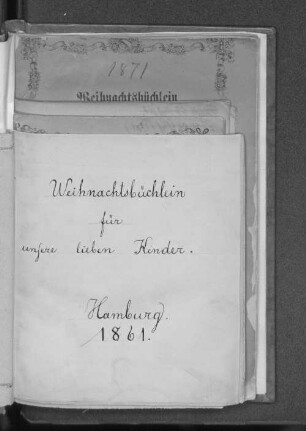 1871
Weihnachtsbüchlein
Weihnachtsbüchlein
für
unsere lieben Kinder.
Hamburg.
1861.